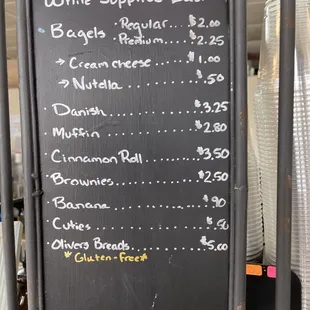 While Supplies Last
Bagels • Regular....$2.00
• Premium...$2.25
→ Cream cheese.....$1.00
→ Nutella..........$.50
• Danish................$3.25
• Muffin...............$2.80
• Cinnamon Roll........$3.50
• Brownies............$2.50
• Banana..............$.90
• Cuties...............$.50
• Olivers Breads.........$5.00
*Gluten-free*